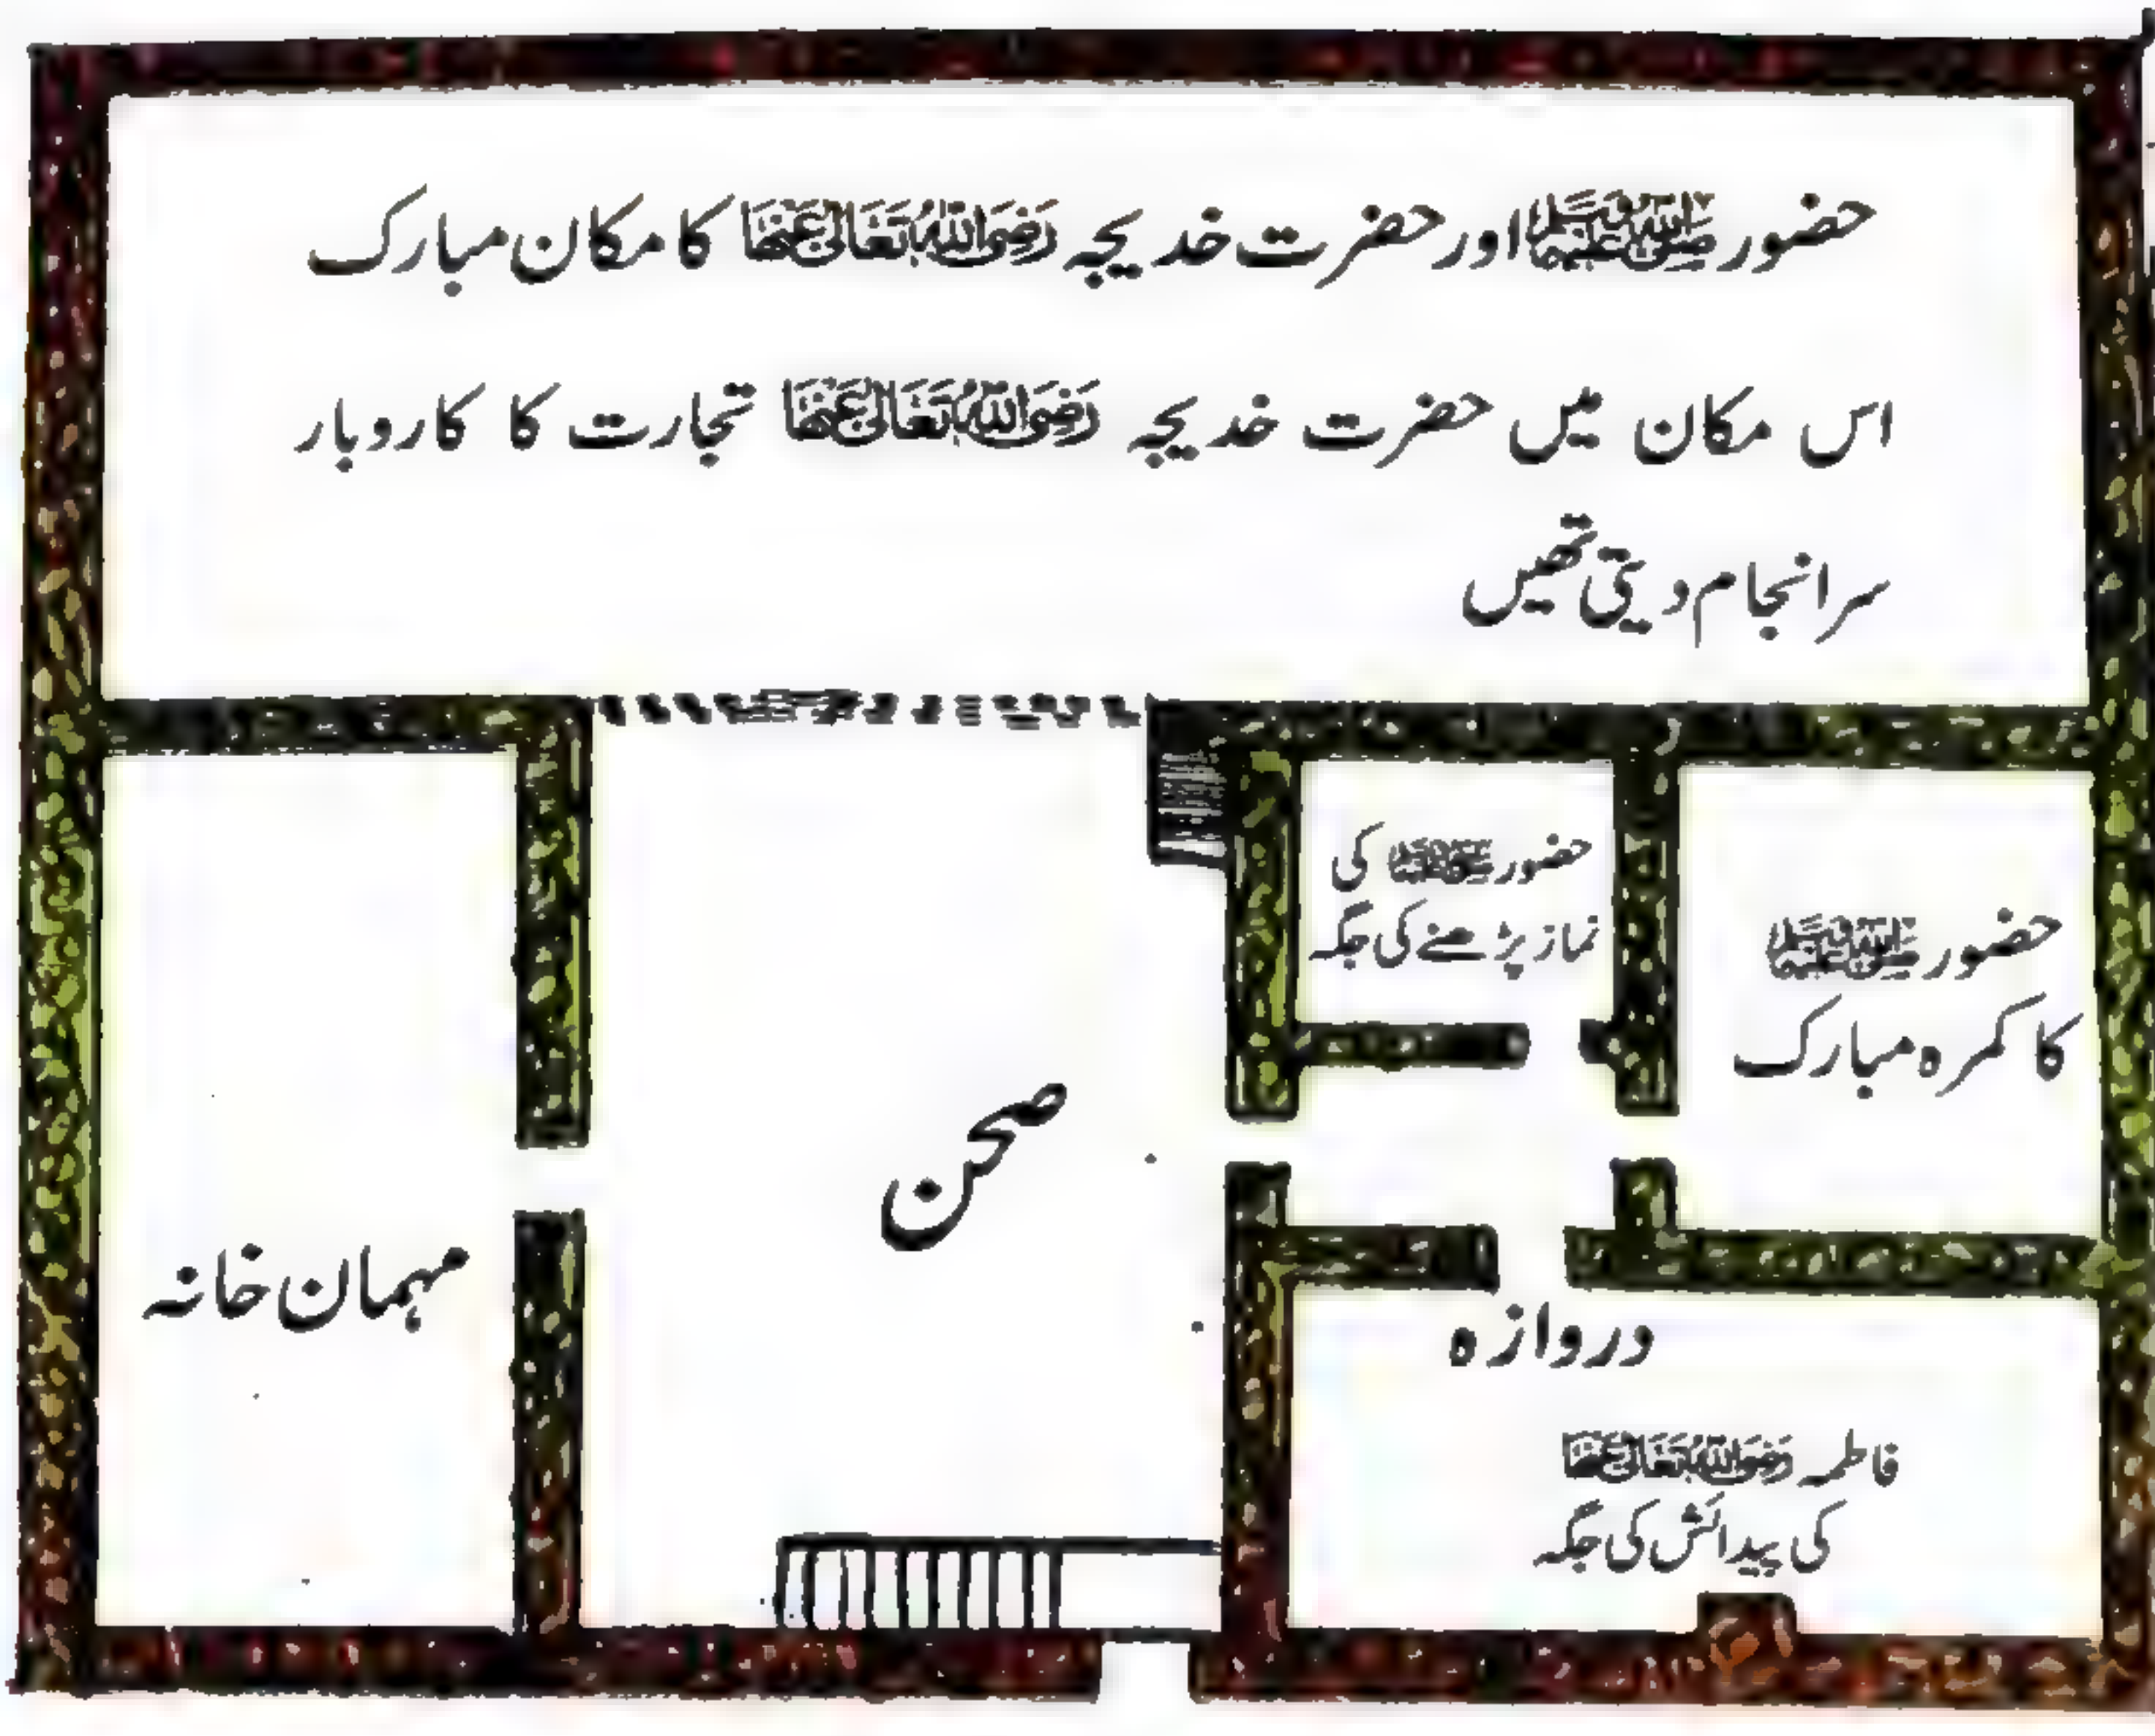 حضور ﷺ اور حضرت خدیجہ رَضِوَاللّٰہُ تَعَالٰی عَنْہَا کا مکان مبارک
اس مکان میں حضرت خدیجہ رَضِوَاللّٰہُ تَعَالٰی عَنْہَا تجارت کا کاروبار
سرانجام دیتی تھیں
حضور ﷺ کی
نماز پڑھنے کی جگہ
حضور ﷺ
کا کمرہ مبارک
صحن
مہمان خانہ
دروازہ
فاطمہ رَضِوَاللّٰہُ تَعَالٰی عَنْہَا
کی پیدائش کی جگہ